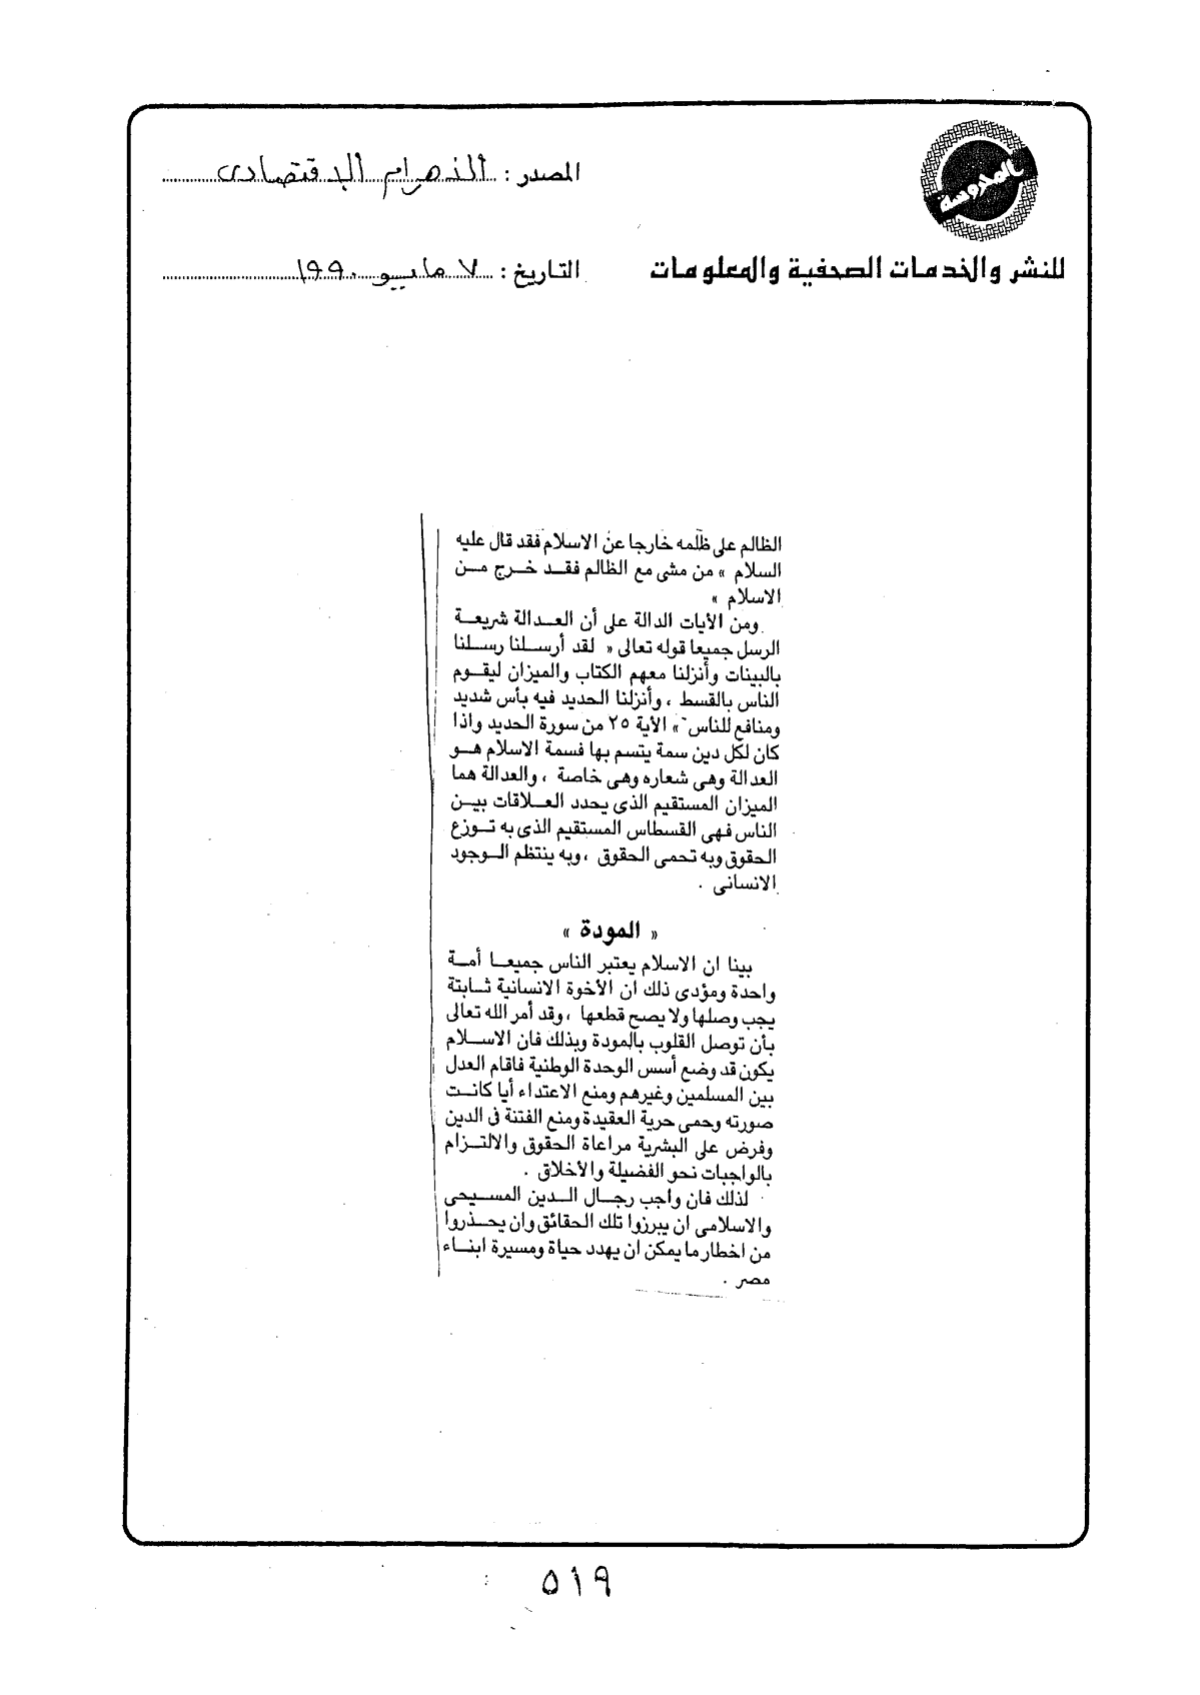 المحروسة
المصدر : الاهرام الاقتصادى
للنشر والخدمات الصحفية والمعلومات
التاريخ : ٧ مايو ١٩٩٠
الظالم على ظلمه خارجا عن الاسلام فقد قال عليه
السلام » من مشى مع الظالم فقد خرج من
الاسلام »
ومن الأيات الدالة على أن العدالة شريعة
الرسل جميعا قوله تعالى « لقد أرسلنا رسلنا
بالبينات وأنزلنا معهم الكتاب والميزان ليقوم
الناس بالقسط ، وأنزلنا الحديد فيه بأس شديد
ومنافع للناس » الأية ٢٥ من سورة الحديد واذا
كان لكل دين سمة يتسم بها فسمة الاسلام هو
العدالة وهى شعاره وهى خاصة ، والعدالة هما
الميزان المستقيم الذى يحدد العلاقات بين
الناس فهى القسطاس المستقيم الذى به توزع
الحقوق وبه تحمى الحقوق ، وبه ينتظم الوجود
الانسانى .
« المودة »
بينا ان الاسلام يعتبر الناس جميعا أمة
واحدة ومؤدى ذلك ان الأخوة الانسانية ثابتة
يجب وصلها ولا يصح قطعها ، وقد أمر الله تعالى
بأن توصل القلوب بالمودة وبذلك فان الاسلام
يكون قد وضع أسس الوحدة الوطنية فاقام العدل
بين المسلمين وغيرهم ومنع الاعتداء أيا كانت
صورته وحمى حرية العقيدة ومنع الفتنة فى الدين
وفرض على البشرية مراعاة الحقوق والالتزام
بالواجبات نحو الفضيلة والأخلاق .
لذلك فان واجب رجال الدين المسيحى
والاسلامى ان يبرزوا تلك الحقائق وان يحذروا
من اخطار ما يمكن ان يهدد حياة ومسيرة ابناء
مصر .
٥١٩